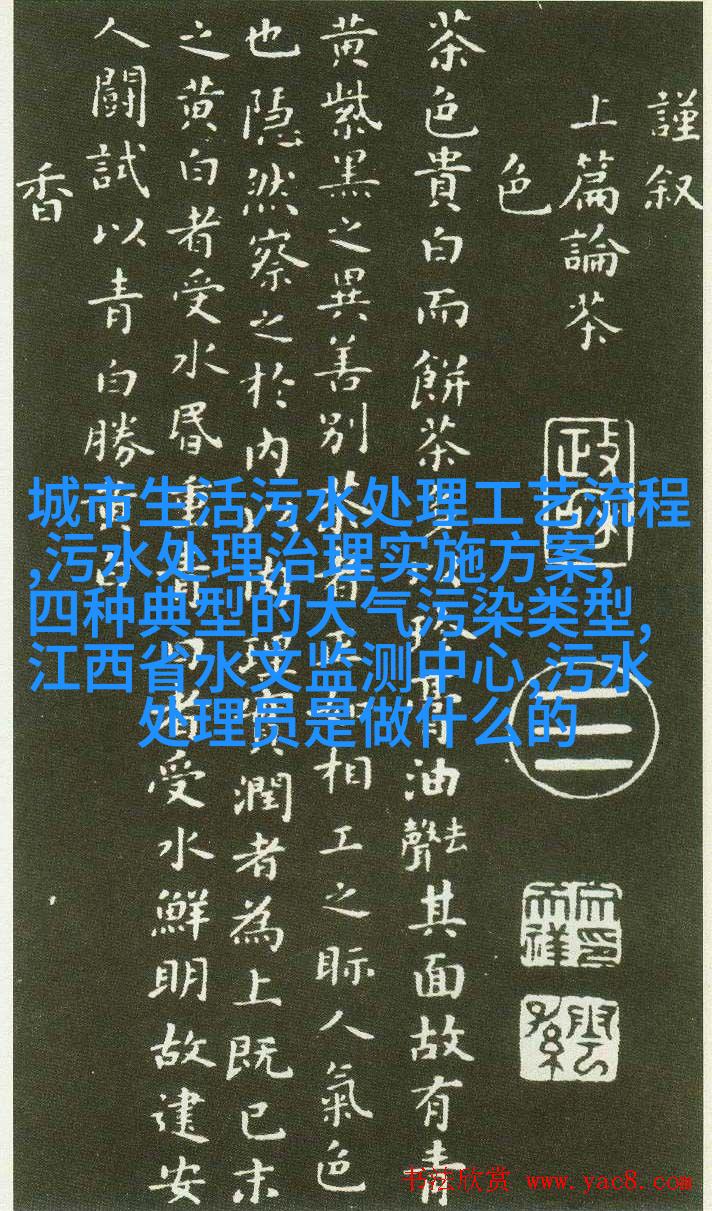 謹叙
上篇論茶
色
茶色貴白而餅茶多以珍膏油去聲其面故有青
黄紫黑之異善別茶者正如相工之眎人氣色
也隠然察之於内以肉理實潤者為上既已末
之黄白者受水昬重青白者受水鮮明故建安
人闘試以青白勝黄白
香
政和
城市生活污水处理工艺流程
,污水处理治理实施方案,
四种典型的大气污染类型,
江西省水文监测中心,污水
处理员是做什么的
书法欣赏 www.yac8.com